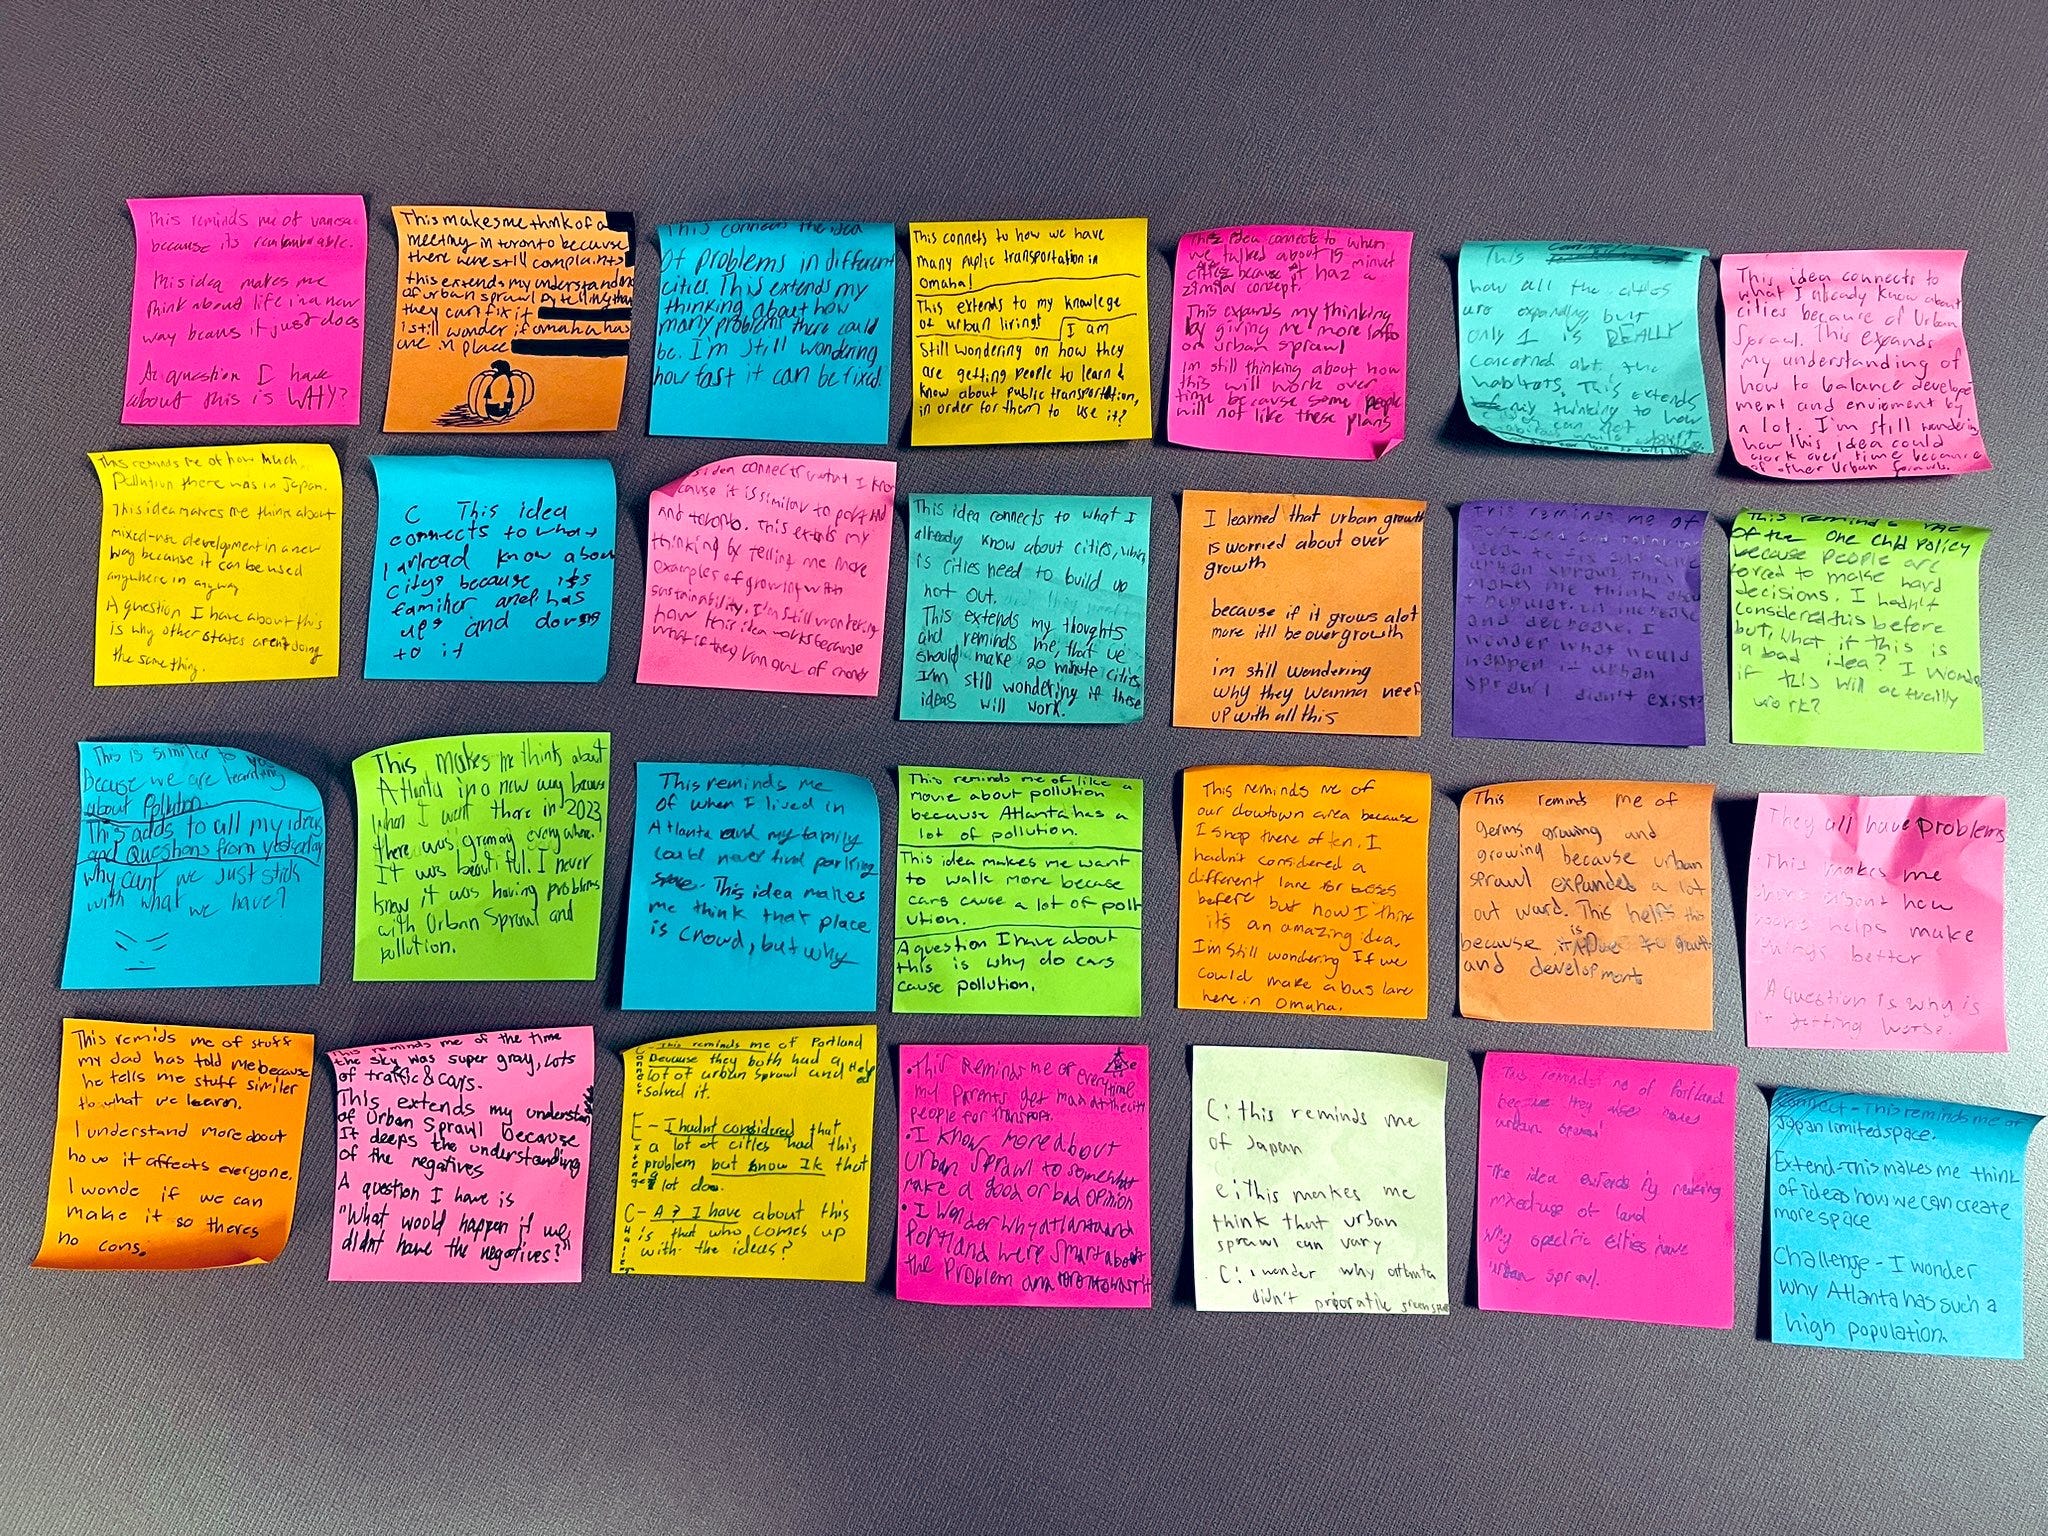 This reminds me of
because its
This idea makes me
think about life in a new
way beaus it just does
A question I have
about this is WHY?
This makes me think of a
meeting in toronto because
there were still complaints
this extends my understanding
of urban sprawl by telling
they can fix it
i still wonder if omaha has
one in place
This connects the idea
of problems in different
cities. This extends my
thinking about how
many problems there could
be. I'm still wondering
how fast it can be fixed.
This connets to how we have
many puplic transportation in
omaha!
This extends to my knowlege
of urban living! I am
Still wondering on how they
are getting people to learn &
know about public transportation,
in order for them to use it?
This idea connects to when
we talked about 15 minuet
cities because it haz a
similar concept.
This expands my thinking
by giving me more info
on urban sprawl
im still thinking about how
this will work over
time because some people
will not like these plans
This
how all the cities
are expanding but
only 1 is REALLY
concerned abt. the
habitats. This extends
my thinking to how
This idea connects to
what I already know about
cities because of Urban
Sprawl. This expands
my understanding of
how to balance develope
ment and enviorment by
a lot. I'm still wondering
how this idea could
work over time because
of other Urban
This reminds me of how much
Pollution there was in Japan.
This idea makes me think about
mixed-use development in a new
way because it can be used
anywhere in anyway
A question I have about this
is why other states arent doing
the same thing.
C This idea
connects to what
I alread know about
citys because its
familier and has
ups and downs
to it
idea connects what I know
cause it is similar to portland
and toronto. This extends my
thinking by telling me more
examples of growing with
sustainability. I'm still wondering
how this idea works because
what if they run out of money
This idea connects to what I
already know about cities, which
is cities need to build up
not out.
This extends my thoughts
and reminds me, that we
should make 20 minute cities
I'm still wondering if these
ideas will work.
I learned that urban growth
is worried about over
growth
because if it grows alot
more itll be overgrowth
im still wondering
why they wanna keep
up with all this
This reminds me of
portland and
ideas to fix and solve
urban sprawl This
makes me think about
population increase
and decrease. I
wonder what would
happen if urban
sprawl didn't exist?
This reminds me
of the one chld policy
because people are
forced to make hard
decisions. I hadn't
considered this before
but, what if this is
a bad idea? I wonder
if this will actually
work?
This is similar to
Because we are learning
about Pollution.
This adds to all my ideas
and Questions from yesterday
why can't we just stick
with what we have?
This makes me think about
Atlanta in a new way because
when I went there in 2023
there was greenary everywhere.
It was beautiful. I never
knew it was having problems
with Urban Sprawl and
pollution.
This reminds me
of when I lived in
Atlanta and my family
could never find parking
space. This idea makes
me think that place
is crowd, but why
This reminds me of like a
movie about pollution
because Atlanta has a
lot of pollution.
This idea makes me want
to walk more because
cars cause a lot of poll
ution.
A question I have about
this is why do cars
cause pollution.
This reminds me of
our dowtown area because
I shop there often. I
hadn't considered a
different lane for buses
before but now I think
it's an amazing idea.
I'm still wondering If we
could make a bus lane
here in Omaha.
This reminds me of
germs growing and
growing because urban
sprawl expanded a lot
out ward. This helps this
because it is growth
and development
They all have problems
This makes me
about how
helps make
things better
A question is why is
it getting worse.
This remids me of stuff
my dad has told me because
he tells me stuff similer
to what we learn.
I understand more about
how it affects everyone.
I wonde if we can
make it so theres
no cons.
This reminds me of the time
the sky was super gray, lots
of traffic & cars.
This extends my understan
of Urban Sprawl because
It deeps the understanding
of the negatives
A question I have is
"What would happen if we
didn't have the negatives?"
This reminds me of Portland
Because they both had a
lot of urban sprawl and Helped
solved it.
E - I hadnt considered that
a lot of citles had this
problem but know Ik that
a lot do.
C - A ? I have about this
is that who comes up
with the ideas?
• This Reminds me of everytime
my parents get mad at the city
people for transport.
• I know more about
urban sprawl to somewhat
make a good or bad opinion
• I wonder why atlanta and
Portland were smart about
the problem and toronto wasn't
C: this reminds me
of Japan
e: this makes me
think that urban
sprawl can vary
C: i wonder why atlanta
didn't
This reminds me of Portland
because they also
urban sprawl
-the idea extends by making
mixed use of land
why specific cities have
urban sprawl.
Connect - This reminds me of
Japan limited space.
Extend - This makes me think
of ideas how we can create
more space
Challenge - I wonder
why Atlanta has such a
high population.